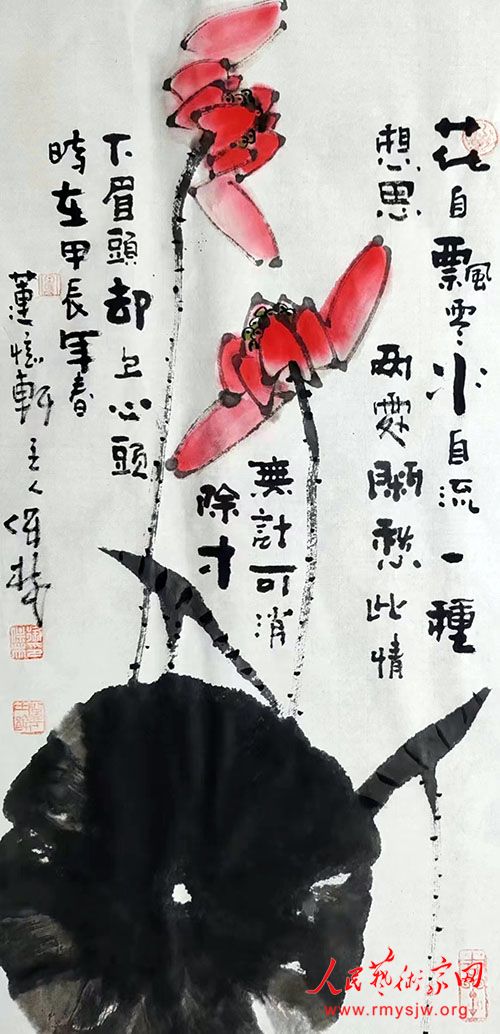 花自飄零水自流一種
想思
兩處閑愁此情
無計可消
除才
下眉頭却上心頭
時在甲辰年春
蓮憶軒主人
人民藝術家网
www.rmysjw.org